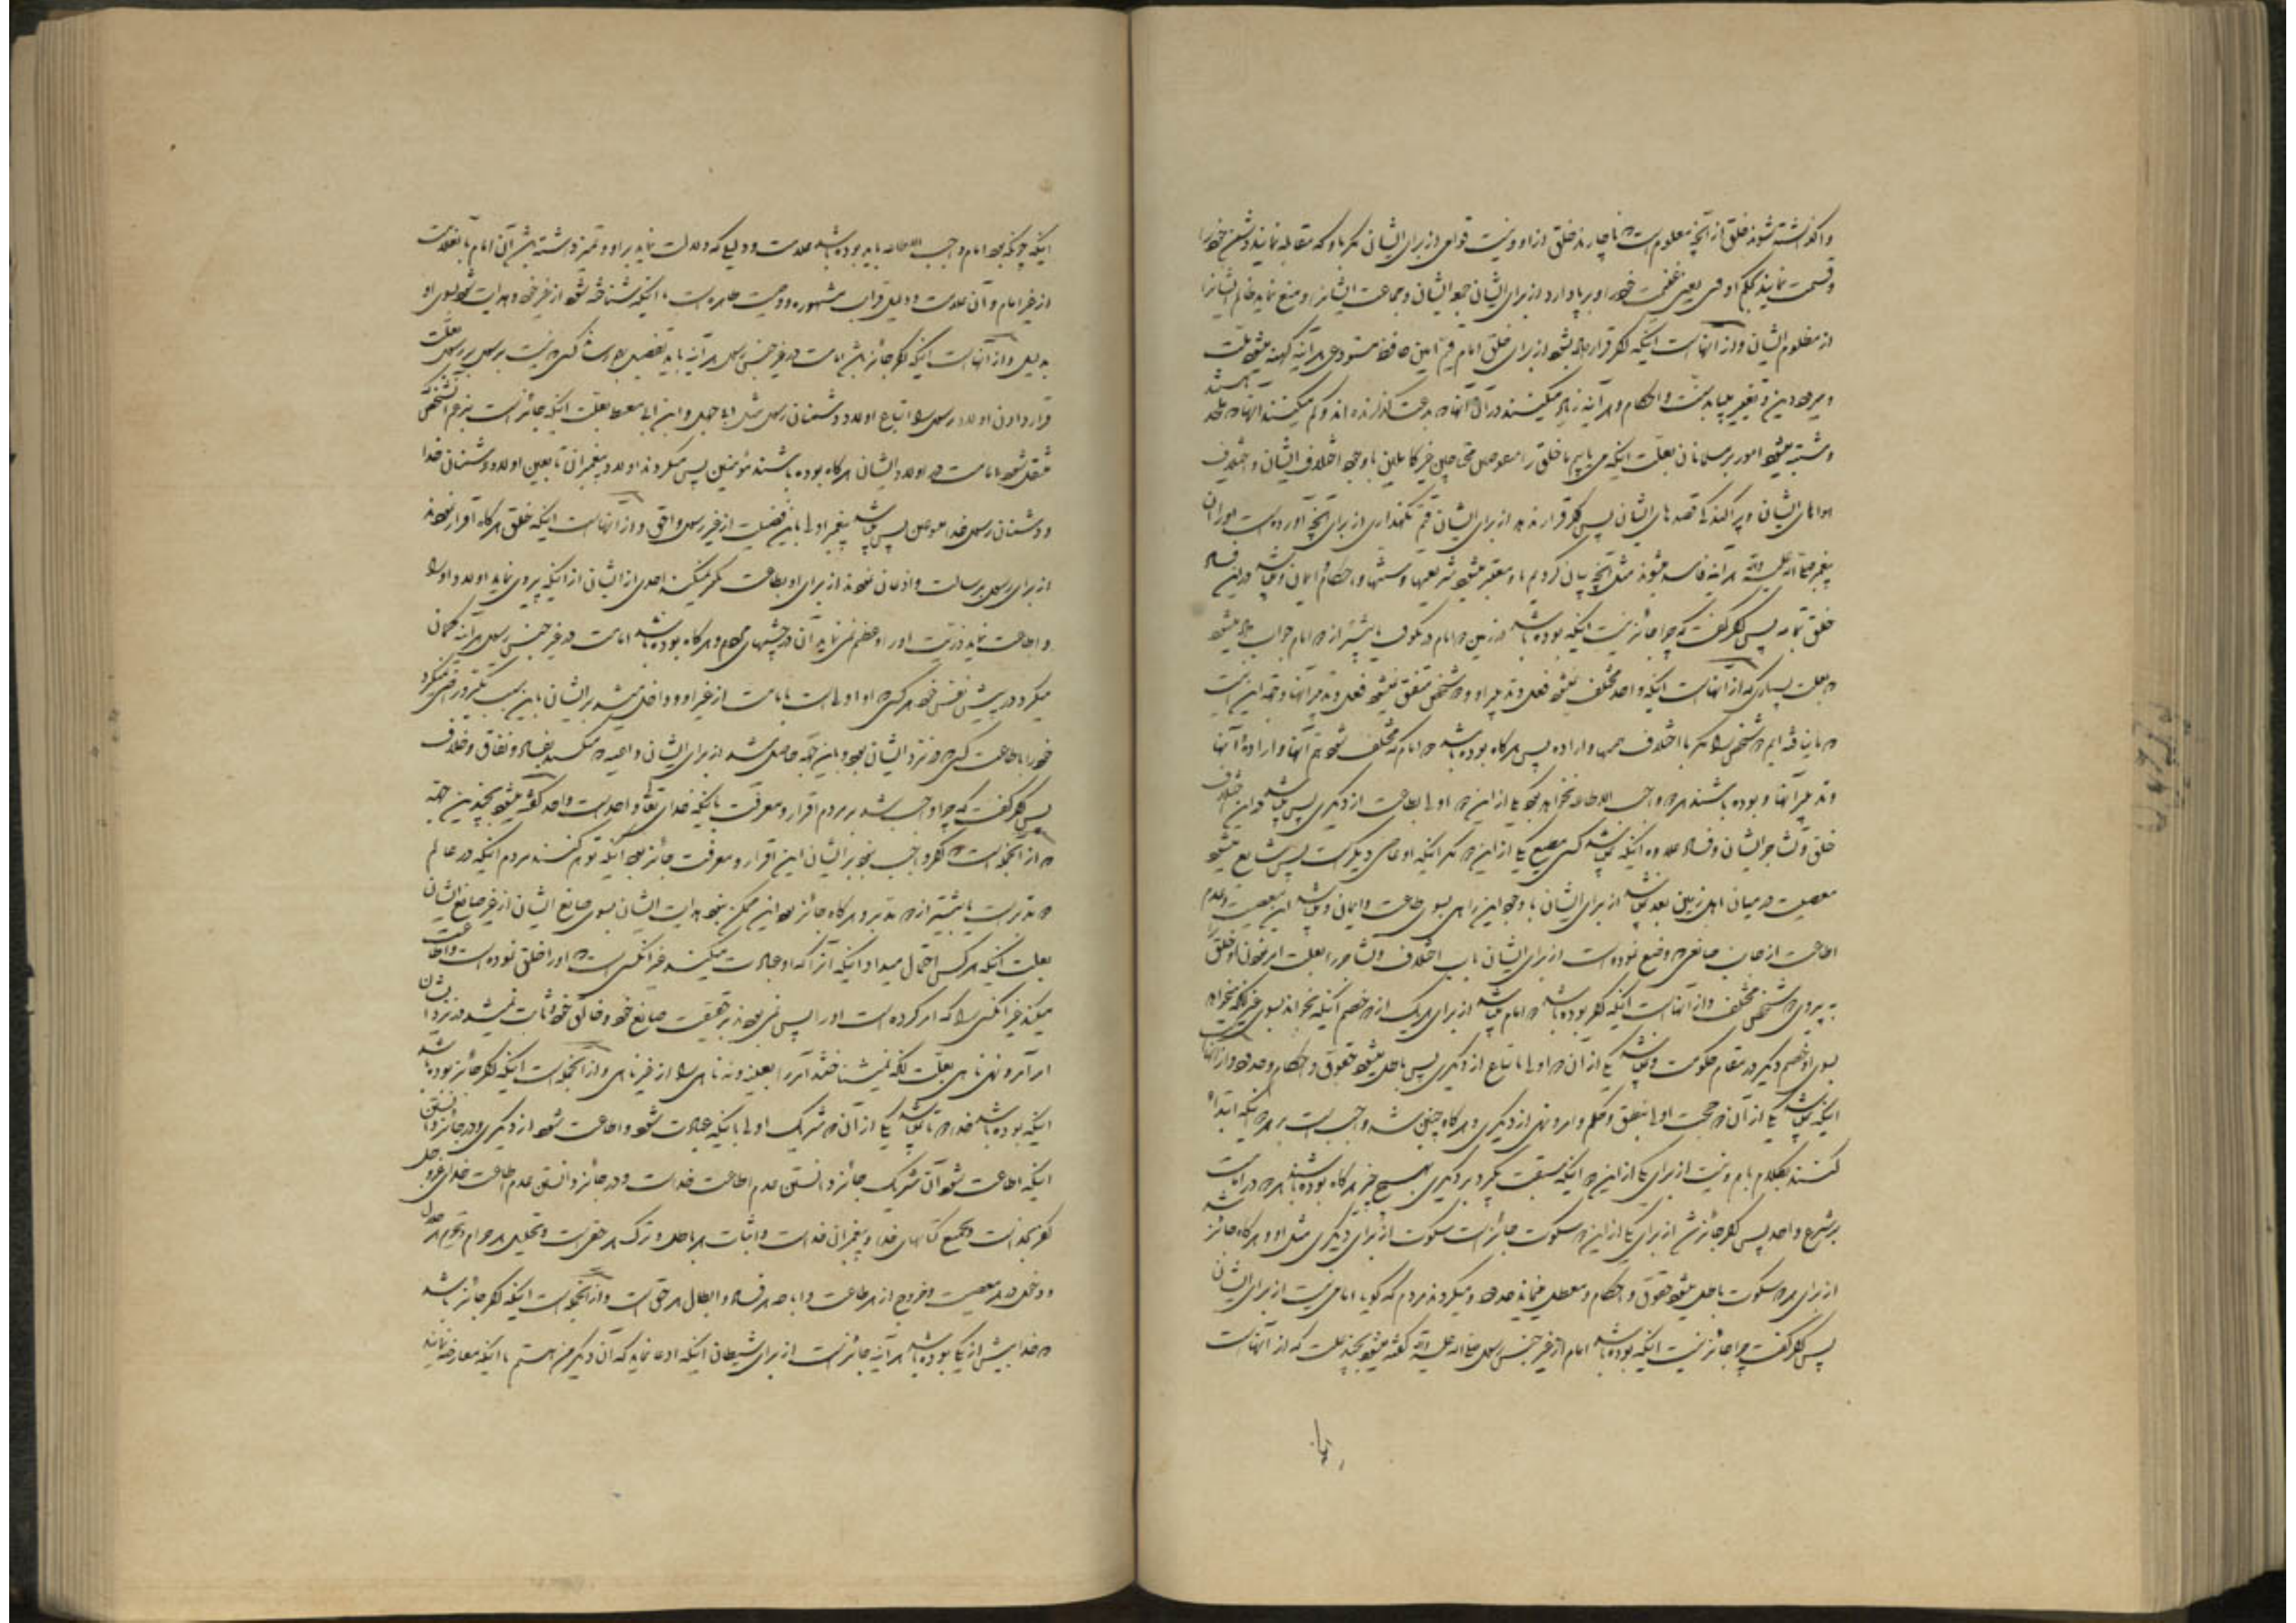 واگذاشته شوند خلق از آنچه معلوم است ناچارند خلق از او و نیست قوامی از برای ایشان مگر باو که مقابله نمایند دشمن خود را
و قسمت نمایند بحکم او فیء یعنی غنیمت خود را و برپا دارد از برای ایشان جمعه ایشان و جماعت ایشانرا و منع نماید ظالم ایشانرا
از مظلوم ایشان و از آنهاست اینکه اگر قرار داده نشود از برای خلق امام قیم امین حافظ مستودعی هر آینه کهنه میشود ملت
و میرود دین و تغییر مییابد سنت و احکام و هر آینه زیاد میکنند در آن آنهاکه بدعت گذارنده اند و کم میکنند آنهاکه ملحد هستند
و مشتبه میشود امور بر مسلمانان بعلت اینکه می یابیم ما خلق را منقوصین محتاجین غیر کاملین با وجود اختلاف ایشان و اختلاف
هواهای ایشان و پراکندگی قصدهای ایشان پس اگر قرار ندهد از برای ایشان قیم نگهداری از برای آنچه آورده است او را آن
پیغمبر صلی الله علیه و آله هر آینه فاسد میشوند مثل آنچه بیان کردیم ما و متغیر میشود شریعتها و سنتها و احکام و ایمان و میباشد در این فساد
خلق تمامه پس اگر گفت که چرا جائز نیست اینکه بوده باشد در زمین دو امام در یکوقت یا بیشتر از دو امام جواب داده میشود
که بعلت بسیاری که از آنهاست اینکه واحد مختلف نمیشود فعل و تدبیر او و دو شخص متفق نمیشود فعل و تدبیر آنها و جهت این است
که ما نیافته ایم دو شخص را مگر با اختلاف همها و اراده پس هرگاه بوده باشد دو امام که مختلف شود هم آنها و اراده آنها
و تدبیر آنها و بوده باشند هر دو واجب الاطاعه نخواهد بود یکی از این دو اولی باطاعت از دیگری پس میباشد در این اختلاف
خلق و تشاجر ایشان و فساد علاوه اینکه نمیباشد کسی مطیع یکی از این دو مگر اینکه او عاصی دیگر است پس شایع میشود
معصیت در میان اهل زمین بعد نمیباشد از برای ایشان با وجود این راهی بسوی طاعت و ایمان و میباشد این معصیت و عدم
اطاعت از جانب صانعی که وضع نموده است از برای ایشان باب اختلاف و تشاجر را بعلت امر نمودن او خلق را
به پیروی دو شخص مختلف و از آنهاست اینکه اگر بوده باشد دو امام میباشد از برای هر یک از دو خصم اینکه بخواند بسوی غیر آنکه میخواند
بسوی او خصم دیگر در مقام حکومت و نمیباشد یکی از آن دو اولی باتباع از دیگری پس باطل میشود حقوق و احکام و حدود و از آنهاست
اینکه نمیباشد یکی از آن دو حجت اولی بنطق و حکم و امر و نهی از دیگری و هرگاه چنین شد واجب است بر هر دو اینکه ابتداء
کنند بکلام باهم و نیست از برای یکی از این دو اینکه سبقت بگیرد بر دیگری بهیچ چیز هرگاه بوده باشند هر دو در امامت
بر شرع واحد پس اگر جائز شد از برای یکی از این دو سکوت جائز است سکوت از برای دیگری مثل او و هرگاه جائز شد
از برای هر دو سکوت باطل میشود حقوق و احکام و معطل میماند حدود و میگردند مردم که گویا امامی نیست از برای ایشان
پس اگر گفت چرا جائز نیست اینکه بوده باشد امام از غیر جنس رسول صلی الله علیه و آله گفته میشود بچند علت که از آنهاست
اینکه چونکه بود امام واجب الاطاعه باید بوده باشد علامت و دلیلی که دلالت نماید بر او و تمیز داشته باشد آن امام با آن علامت
از غیر امام و آن علامت و دلیل قرابت مشهوره و وصیت ظاهره است تا اینکه شناخته شود از غیر خود و هدایت شود بسوی او
بدلیل و از آنهاست اینکه اگر جائز باشد امامت در غیر جنس رسول هر آینه باید تفضیل داده باشد کسی که نیست رسول بر رسول بعلت
قرار دادن اولاد رسول را اتباع اولاد دشمنان رسول مثل ابی جهل و ابن ابی معیط بعلت اینکه جائز است بزعم آنشخص
منتقل شود امامت در اولاد ایشان هرگاه بوده باشند مؤمنین پس میگردند اولاد پیغمبران تابعین و اولاد دشمنان خدا
و دشمنان رسول خدا متبوعین پس میباشد پیغمبر اولی باین فضیلت از غیر رسول و احق و از آنهاست اینکه خلق هرگاه اقرار نمودند
از برای رسول برسالت و اذعان نمودند از برای او بطاعت تکبر نمیکند احدی از ایشان از اینکه پیروی نماید اولاد او را
و اطاعت نماید ذریت او را و عظم نمی نماید آن در چشمهای مردم و هرگاه بوده باشد امامت در غیر جنس رسول هر آینه گمان
میکرد در پیش نفس خود هر کسی که او اولی است بامامت از غیر او و داخل میشد بر ایشان باین سبب تکبر و راضی نمیکرد
خود را باطاعت کسی که نزد ایشان بود و باین جهة حاصل شد از برای ایشان داعیه که میکشد بفساد و نفاق و خلاف
پس اگر گفت که چرا واجب شد بر مردم اقرار و معرفت باینکه خدای تعالی واحد است و احد گفته میشود بچندین جهة
که از آنجمله است که اگر واجب نبود بر ایشان این اقرار و معرفت جائز بود اینکه توهم کنند مردم اینکه در عالم
دو مدبر است یا بیشتر از دو مدبر و هرگاه جائز بود این ممکن نبود هدایت ایشان بسوی صانع ایشان از غیر صانع ایشان
بعلت اینکه هر کس احتمال میداد اینکه آنرا که او عبادت میکند غیر آنکسی است که او را خلق نموده است و اطاعت
میکند غیر آنکس را که امر کرده است او را پس نمی بودند بر حقیقت صانع خود و خالق خود و ثابت نمیشد در نزد ایشان
امر آمر و نهی ناهی بعلت آنکه نمیشناختند آمر را بعینه و نه ناهی را از غیر ناهی و از آنجمله است اینکه اگر جائز بوده باشد
اینکه بوده باشد خدا دو تا نمیباشد یکی از آن دو شریک اولی باینکه عبادت شود و اطاعت شود از دیگری و در جائز دانستن
اینکه اطاعت شود آن شریک جائز دانستن عدم اطاعت خداست و در جائز دانستن عدم اطاعت خدای عزوجل
کفر بخداست و بجمیع کتابهای خدا و پیغمبران خداست و اثبات هر باطل و ترک هر حق است و تحلیل هر حرام و تحریم هر حلال
و دخول در هر معصیت و خروج از هر طاعت و اباحه هر فساد و ابطال هر حق است و از آنجمله است اینکه اگر جائز باشد
که خدا بیش از یکی بوده باشد هر آینه جائز است از برای شیطان اینکه ادعا نماید که آن دیگر من هستم تا اینکه معارضه نماید